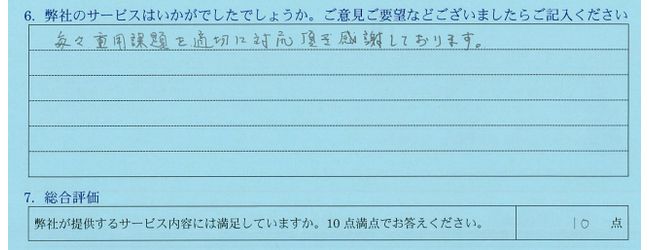 6. 弊社のサービスはいかがでしたでしょうか。ご意見ご要望などございましたらご記入ください
毎々 課題を適切に対応頂き感謝しております。
7. 総合評価
弊社が提供するサービス内容には満足していますか。10点満点でお答えください。 10 点